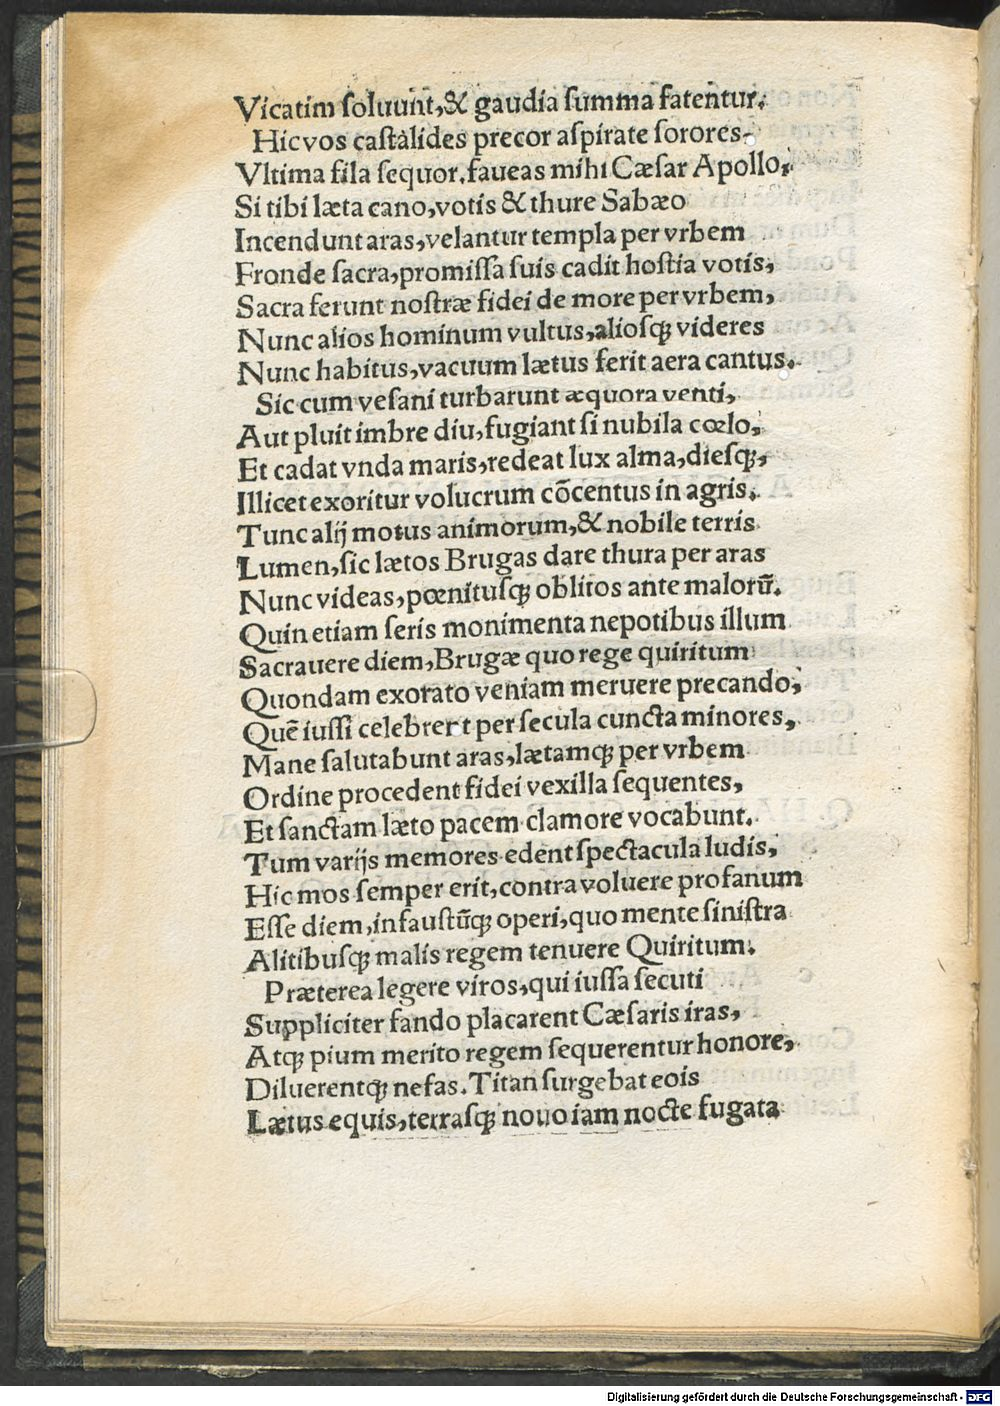 Vicatim soluunt,& gaudia summa fatentur.
Hic vos castalides precor aspirate sorores
Vltima fila sequor.faueas mihi Cæsar Apollo,
Si tibi læta cano,votis & thure Sabæo
Incendunt aras,velantur templa per vrbem
Fronde sacra,promissa suis cadit hostia votis,
Sacra ferunt nostræ fidei de more per vrbem,
Nunc alios hominum vultus,aliosqꝫ videres
Nunc habitus,vacuum lætus ferit aera cantus.
Sic cum vesani turbarunt æquora venti,
Aut pluit imbre diu,fugiant si nubila cœlo,
Et cadat vnda maris,redeat lux alma,diesqꝫ,
Illicet exoritur volucrum cõcentus in agris,
Tunc alij motus animorum,& nobile terris
Lumen,sic lætos Brugas dare thura per aras
Nunc videas,pœnitusqꝫ oblitos ante malorũ.
Quin etiam seris monimenta nepotibus illum
Sacrauere diem,Brugæ quo rege quiritum
Quondam exorato veniam meruere precando,
Quē iussi celebrent per secula cuncta minores,
Mane salutabunt aras,lætamqꝫ per vrbem
Ordine procedent fidei vexilla sequentes,
Et sanctam læto pacem clamore vocabunt.
Tum varijs memores edent spectacula ludis,
Hic mos semper erit,contra voluere profanum
Esse diem,infaustũqꝫ operi,quo mente sinistra
Alitibusqꝫ malis regem tenuere Quiritum.
Præterea legere viros,qui iussa secuti
Suppliciter fando placarent Cæsaris iras,
Atqꝫ pium merito regem sequerentur honore,
Diluerentqꝫ nefas.Titan surgebat eois
Lætus equis,terrasqꝫ nouo iam nocte fugata
Digitalisierung gefördert durch die Deutsche Forschungsgemeinschaft - DFG